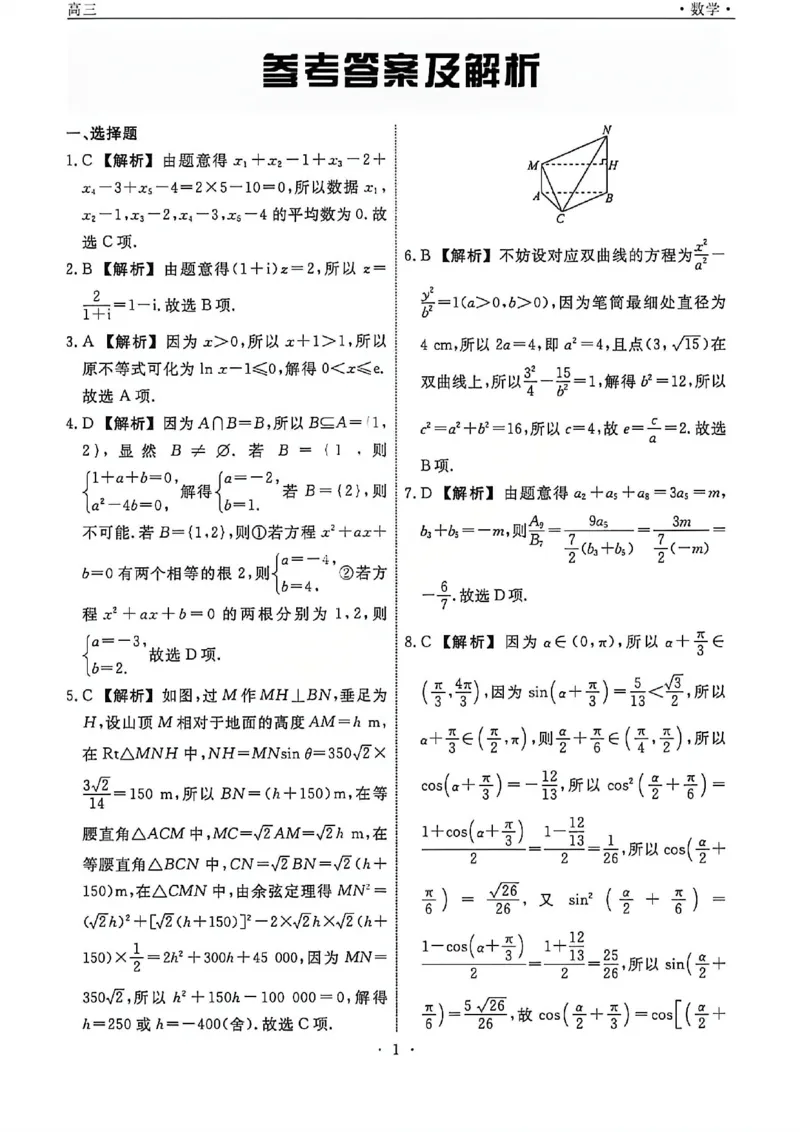 高三
·数学·
参考答案及解析
一、选择题
1.C 【解析】由题意得 x₁+x₂−1+x₃−2+
x₄−3+x₅−4=2×5−10=0,所以数据 x₁,
x₂−1,x₃−2,x₄−3,x₅−4 的平均数为0.故
选C项.
2.B 【解析】由题意得(1+i)z=2,所以 z=
2/(1+i)=1−i.故选B项.
3.A 【解析】因为 x>0,所以 x+1>1,所以
原不等式可化为 ln x−1≤0,解得 0<x≤e.
故选 A 项.
4.D 【解析】因为 A∩B=B,所以 B⊆A={1,
2}, 显然 B ≠ ∅. 若 B = {1 , 则
{1+a+b=0, a²−4b=0, 解得{a=−2, b=1. 若 B={2},则
不可能.若 B={1,2},则①若方程 x²+ax+
b=0 有两个相等的根 2,则{a=−4, b=4. ②若方
程 x²+ax+b=0 的两根分别为 1,2,则
{a=−3, b=2. 故选D项.
5.C 【解析】如图,过 M 作 MH⊥BN,垂足为
H,设山顶 M 相对于地面的高度 AM=h m,
在 Rt△MNH 中,NH=MNsin θ=350√2×
3√2/14=150 m,所以 BN=(h+150)m,在等
腰直角△ACM 中,MC=√2AM=√2h m,在
等腰直角△BCN 中,CN=√2BN=√2(h+
150)m,在△CMN 中,由余弦定理得 MN²=
(√2h)²+[√2(h+150)]²−2×√2h×√2(h+
150)×1/2=2h²+300h+45 000,因为 MN=
350√2,所以 h²+150h−100 000=0,解得
h=250 或 h=−400(舍).故选C项.
N
M
H
A
B
C
6.B 【解析】不妨设对应双曲线的方程为x²/a²−
y²/b²=1(a>0,b>0),因为笔筒最细处直径为
4 cm,所以 2a=4,即 a²=4,且点(3,√15)在
双曲线上,所以3²/4−15/b²=1,解得 b²=12,所以
c²=a²+b²=16,所以 c=4,故 e=c/a=2.故选
B项.
7.D 【解析】由题意得 a₂+a₅+a₈=3a₅=m,
b₃+b₅=−m,则A₉/B₇=9a₅/(7/2(b₃+b₅))=3m/(7/2(−m))=
−6/7.故选D项.
8.C 【解析】因为 α∈(0,π),所以 α+π/3∈
(π/3,4π/3),因为 sin(α+π/3)=5/13<√3/2,所以
α+π/3∈(π/2,π),则α/2+π/6∈(π/4,π/2),所以
cos(α+π/3)=−12/13,所以 cos²(α/2+π/6)=
(1+cos(α+π/3))/2=(1−12/13)/2=1/26,所以 cos(α/2+
π/6) = √26/26, 又 sin² (α/2 + π/6) =
(1−cos(α+π/3))/2=(1+12/13)/2=25/26,所以 sin(α/2+
π/6)=5√26/26,故 cos(α/2+π/3)=cos[(α/2+
· 1 ·